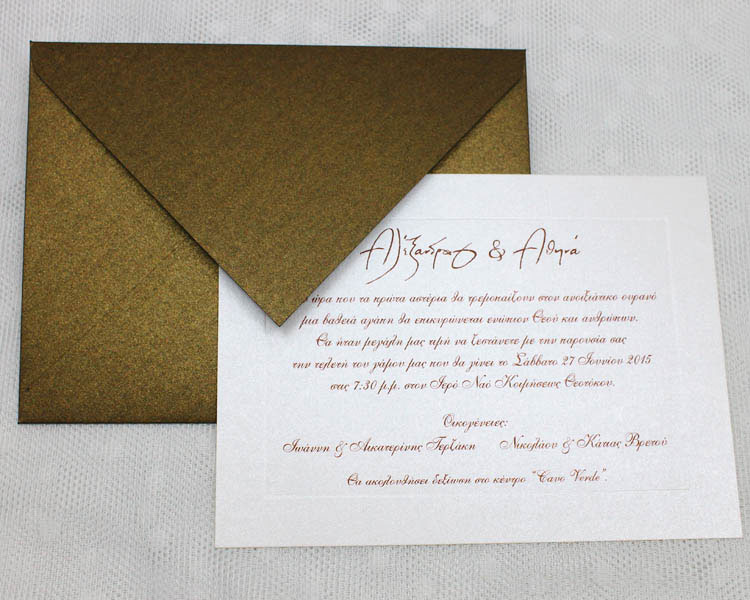 Αλέξανδρος & Αθηνά
ώρα που τα πρώτα αστέρια θα τρεμοπαίζουν στον ανοιξιάτικο ουρανό
μια βαθειά αγάπη θα επικυρώνεται ενώπιον Θεού και ανθρώπων.
Θα ήταν μεγάλη μας τιμή να ζεστάνετε με την παρουσία σας
την τελετή του γάμου μας που θα γίνει το Σάββατο 27 Ιουνίου 2015
στις 7:30 μ.μ. στον Ιερό Ναό Κοιμήσεως Θεοτόκου.
Οικογένειες:
Ιωάννη & Αικατερίνης Τερζάκη Νικολάου & Κάτιας Βρεττού
Θα ακολουθήσει δεξίωση στο κέντρο "Cavo Verde".